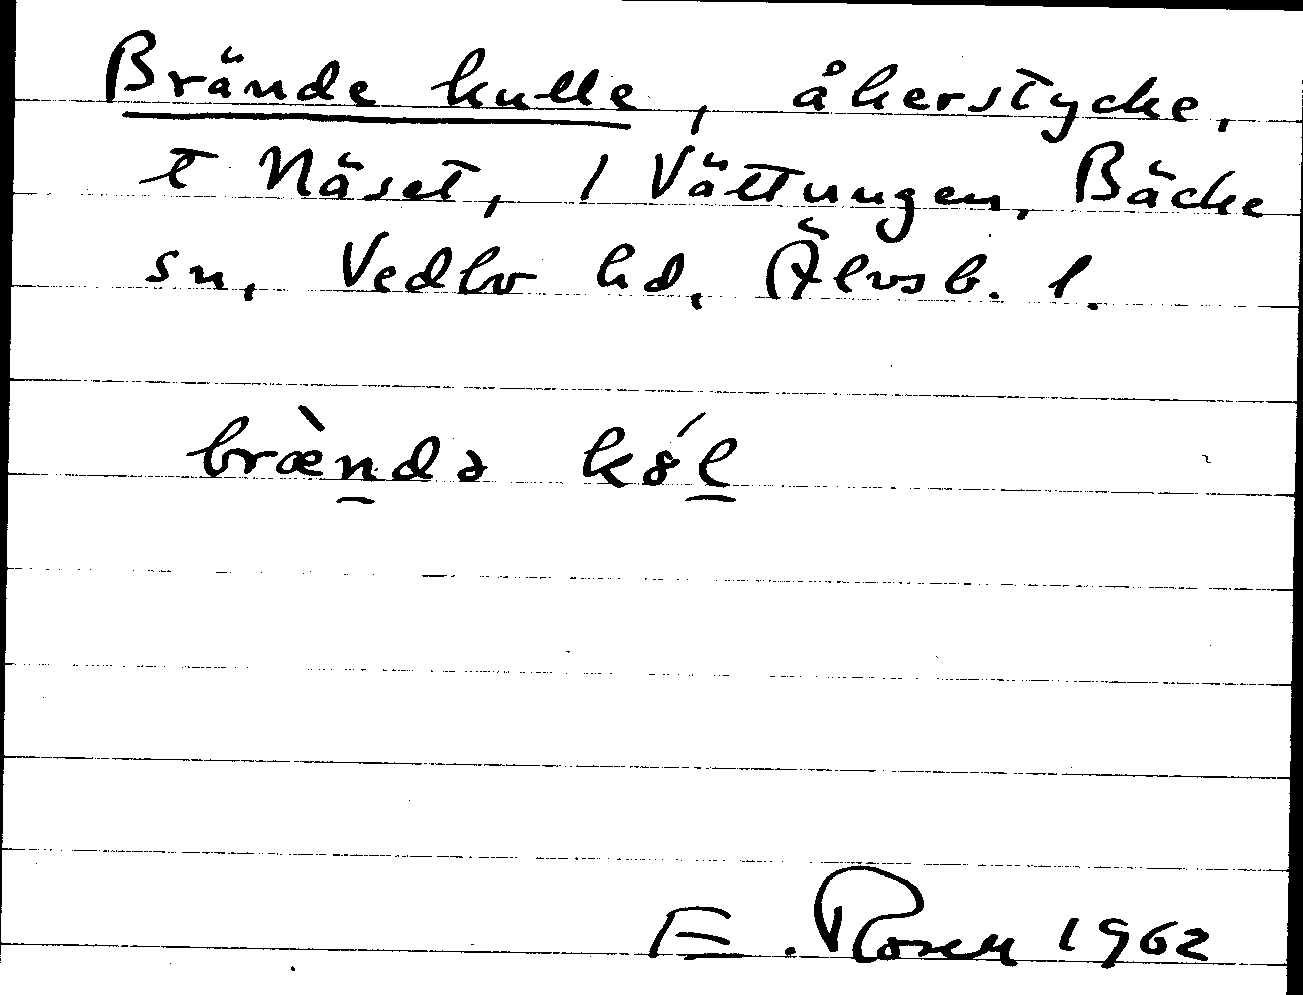 Brände kulle, åkerstycke,
t Näset, 1 Vättungen, Bäcke
sn, Vedbo hd, Älvsb. l.
bræ̀ndə kȣ́l
E. Rosell 1962